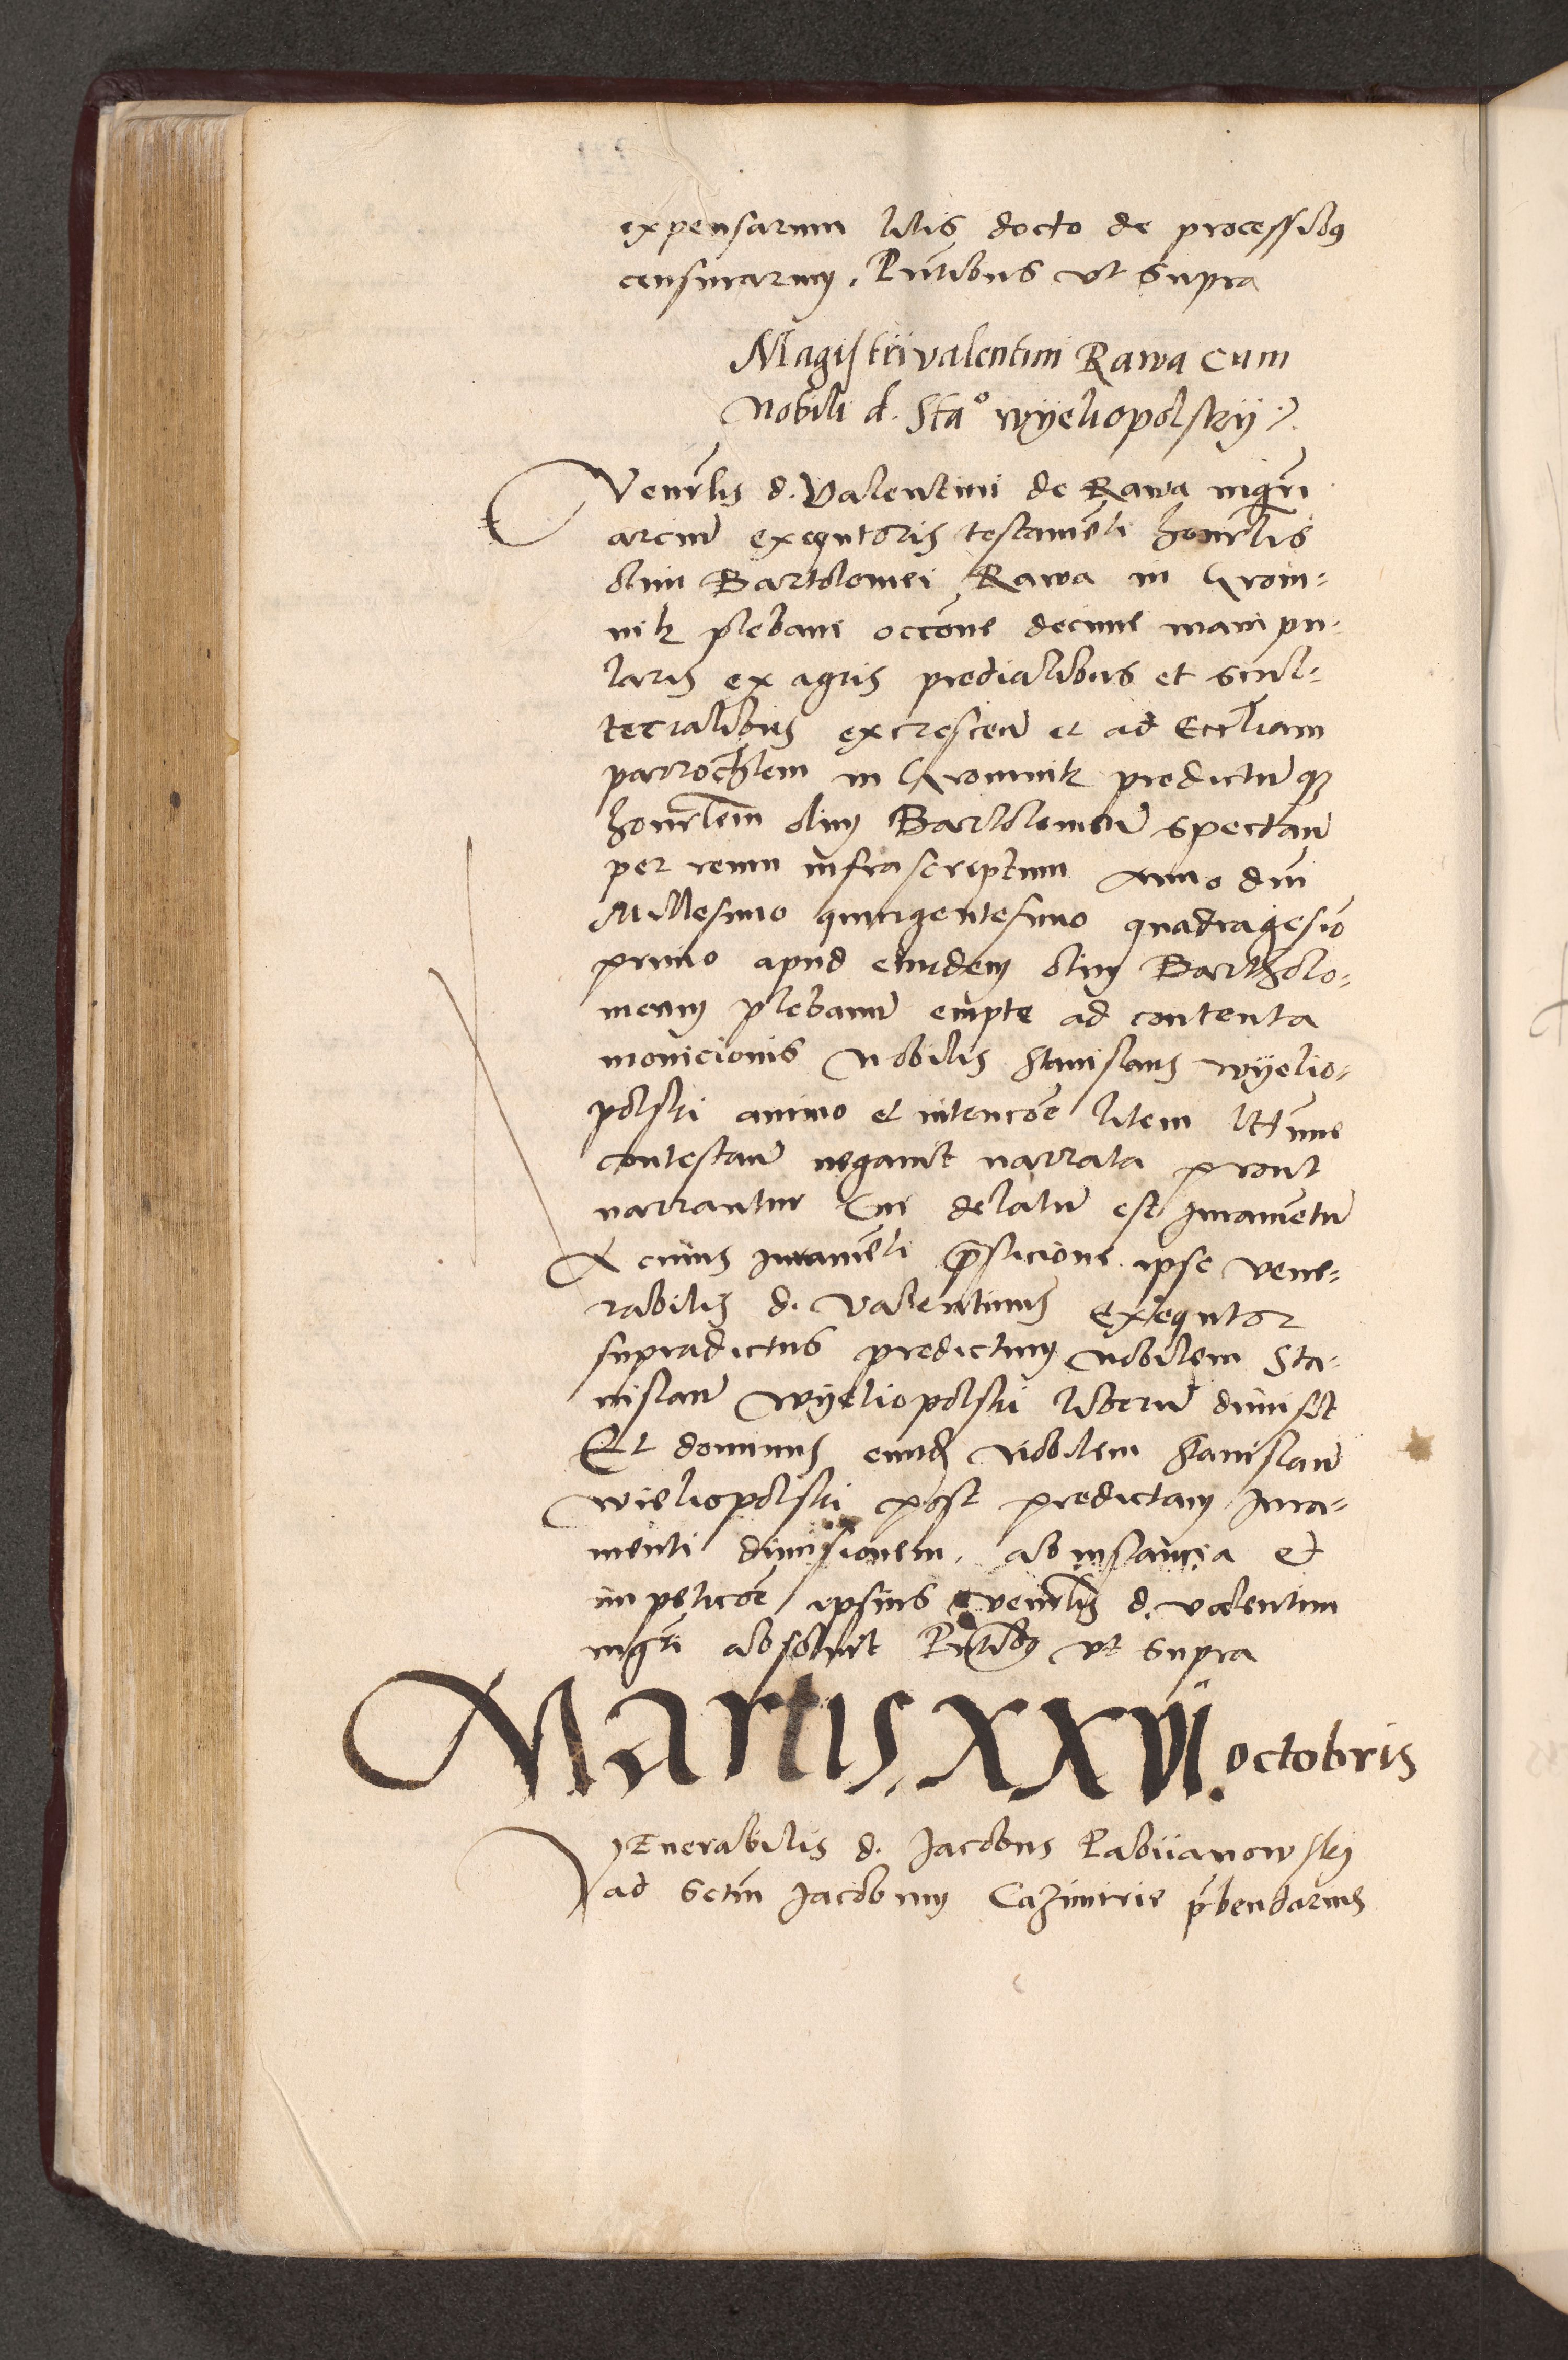 expensarum litis docto de processibus
censurarum. Pntibus vt supra
Magistri valentini Rawa cum
Nobili d. Sta° wyeliopolsky
Venrlis d. Valentini de Rawa mgri
arcium exequtoris testamenti honrlis
olim Bartolomei Rawa in Grom-
nik plebani occone decime manipu-
laris ex agris predialibus et scul-
tetialibus excrescen et ad Eccliam
parrochlem in Gromnik predictumque
honrlem olim Bartolomeum spectan
per reum infrascriptum Anno dni
Millesimo quingentesimo quadragesio
primo apud eundem olim Bartholo-
meum plebanum empte ad contenta
monicionis Nobilis Stanislaus wyelio-
polski animo et intencone litem littime
contestan negauit narrata prout
narrantur Cui delatum est Iuramentum
A cuius Iuramenti prestacione ipse vene-
rabilis d. valentinus exequtor
supradictus predictum nobilem Sta-
nislaum wyeliopolski liberum dimisit
Et dominus eundem Nobilem Stanislaum
wieliopolski post predictam Iura-
menti dimissionem, ab instancia et
impeticone ipsius venrlis d. valentini
mgri absoluit Pntibus vt supra
Martis. XXVII. octobris
VEnerabilis d. Jacobus Pabiianowsky
ad Sctm Jacobum Cazimirie prbendarius